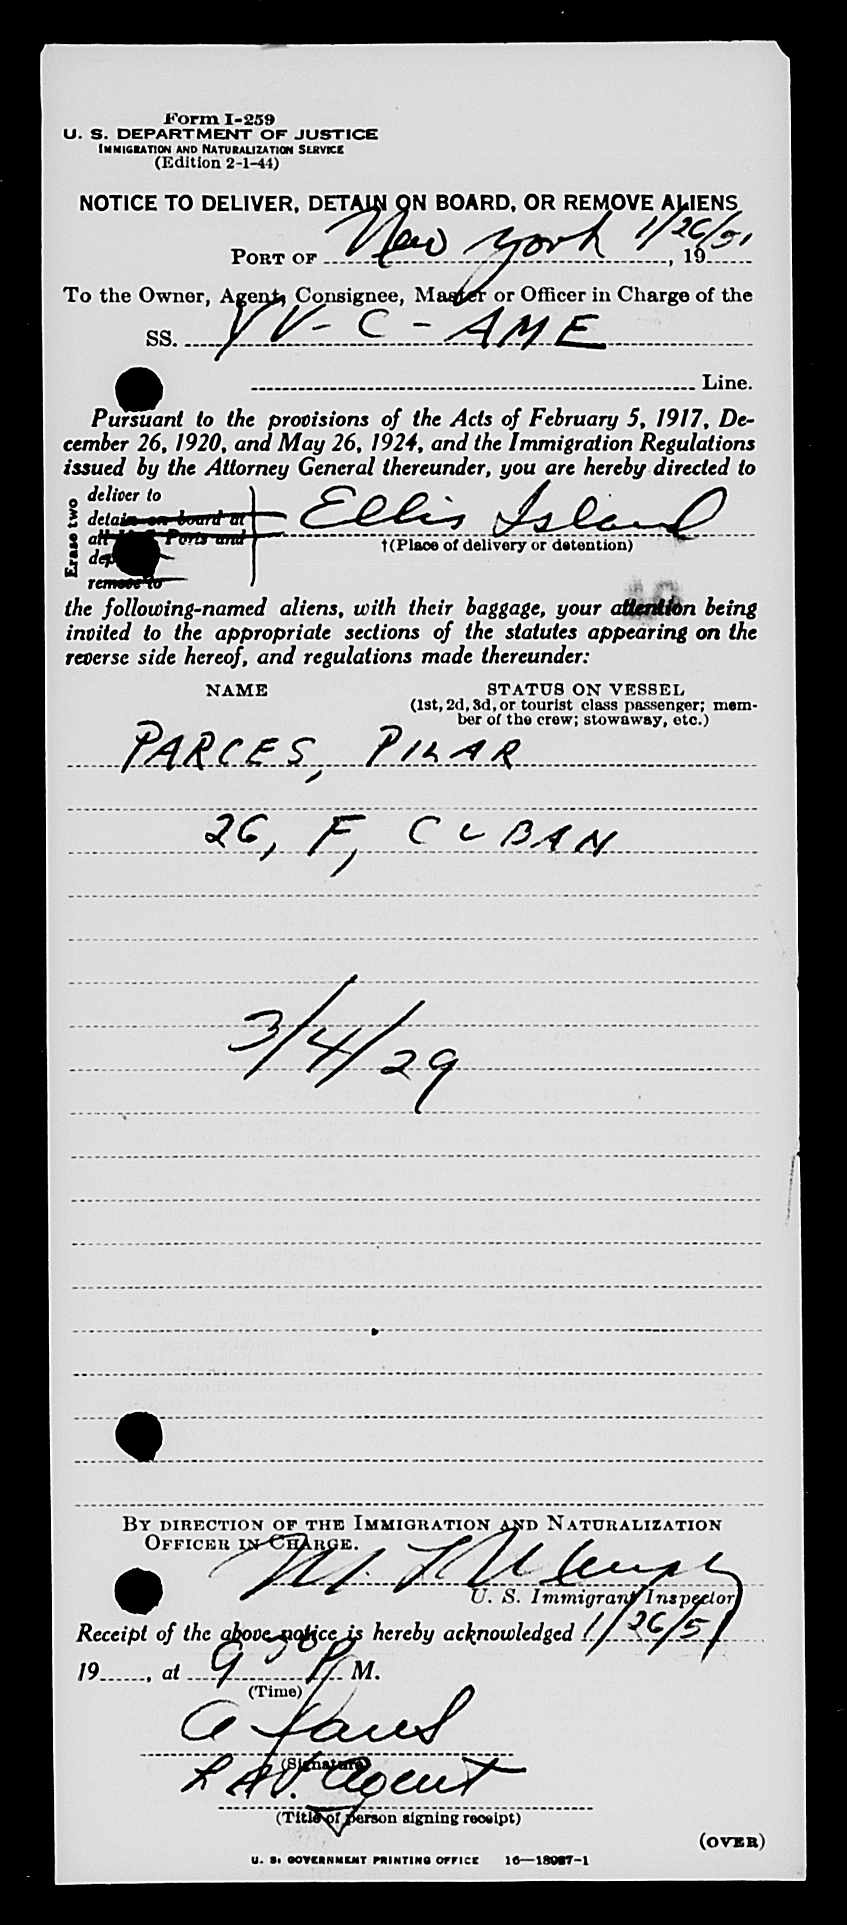 Form I-259
U. S. DEPARTMENT OF JUSTICE
IMMIGRATION AND NATURALIZATION SERVICE
(Edition 2-1-44)
NOTICE TO DELIVER, DETAIN ON BOARD, OR REMOVE ALIENS
PORT OF New York 1/26/51, 19
To the Owner, Agent, Consignee, Master or Officer in Charge of the
SS. YV-C-AME
Line.
Pursuant to the provisions of the Acts of February 5, 1917, De-
cember 26, 1920, and May 26, 1924, and the Immigration Regulations
issued by the Attorney General thereunder, you are hereby directed to
Erase two
deliver to
detain on board at
all Ports and
remove to
Ellis Island
†(Place of delivery or detention)
the following-named aliens, with their baggage, your attention being
invited to the appropriate sections of the statutes appearing on the
reverse side hereof, and regulations made thereunder:
NAME STATUS ON VESSEL
(1st, 2d, 3d, or tourist class passenger; mem-
ber of the crew; stowaway, etc.)
PARCES, PILAR
26, F, CUBAN
3/4/29
BY DIRECTION OF THE IMMIGRATION AND NATURALIZATION
OFFICER IN CHARGE.
U. S. Immigrant Inspector
Receipt of the above notice is hereby acknowledged 1/26/51
19, at 9 30 P M.
(Time)
(Signature)
Agent
(Title of person signing receipt)
(OVER)
U. S. GOVERNMENT PRINTING OFFICE 16—18087-1